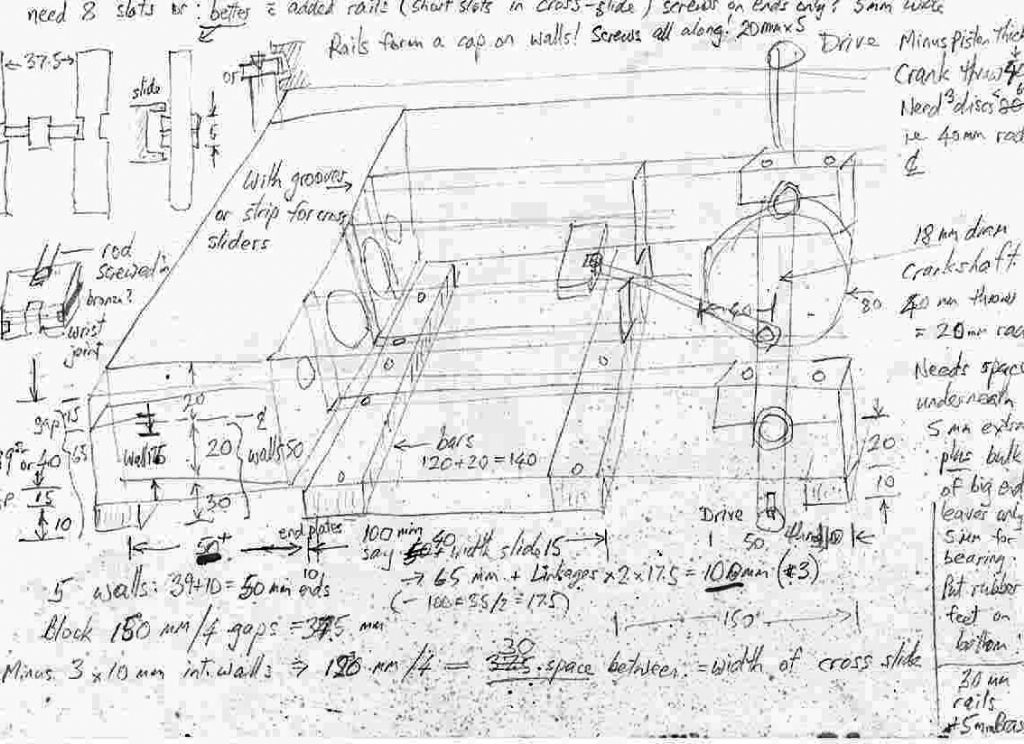 need 8 slots or: better c added rails (short slots in cross-slide) screws on ends only? 5mm wide
Rails form a cap on walls! Screws all along! 20mm x 5
Drive
37.5
slide
6
or
With grooves
or strip for cross
sliders
rod
screwed in
bronze?
wrist
joint
Minus Piston thick
Crank throw
Need 3 discs
i.e. 40mm rad
18 mm diam
crankshaft
40 mm throws
= 20mm rad
80
40
Needs space
underneath
5 mm extra
plus bulk
of big end
leaves only
5 mm for
bearing.
Put rubber
feet on
bottom!
20
10
30 mm
rails
+5mm Brass
gap 15
65
or 40
15
10
wall 15
20
20
30
walls 50
bars
120+20 = 140
50+
end plates
10
100 min
say 40 + width slide 15
→ 65 mm + Linkages x 2 x 17.5 = 100mm (#3)
(- 100 = 35/2 = 17.5)
Drive
50
150
5 walls: 39+10 = 50 mm ends
Block 150 mm/4 gaps = 37.5 mm
Minus 3 x 10 mm int. walls ⇒ 120 mm/4 = 30 space between = width of cross slide